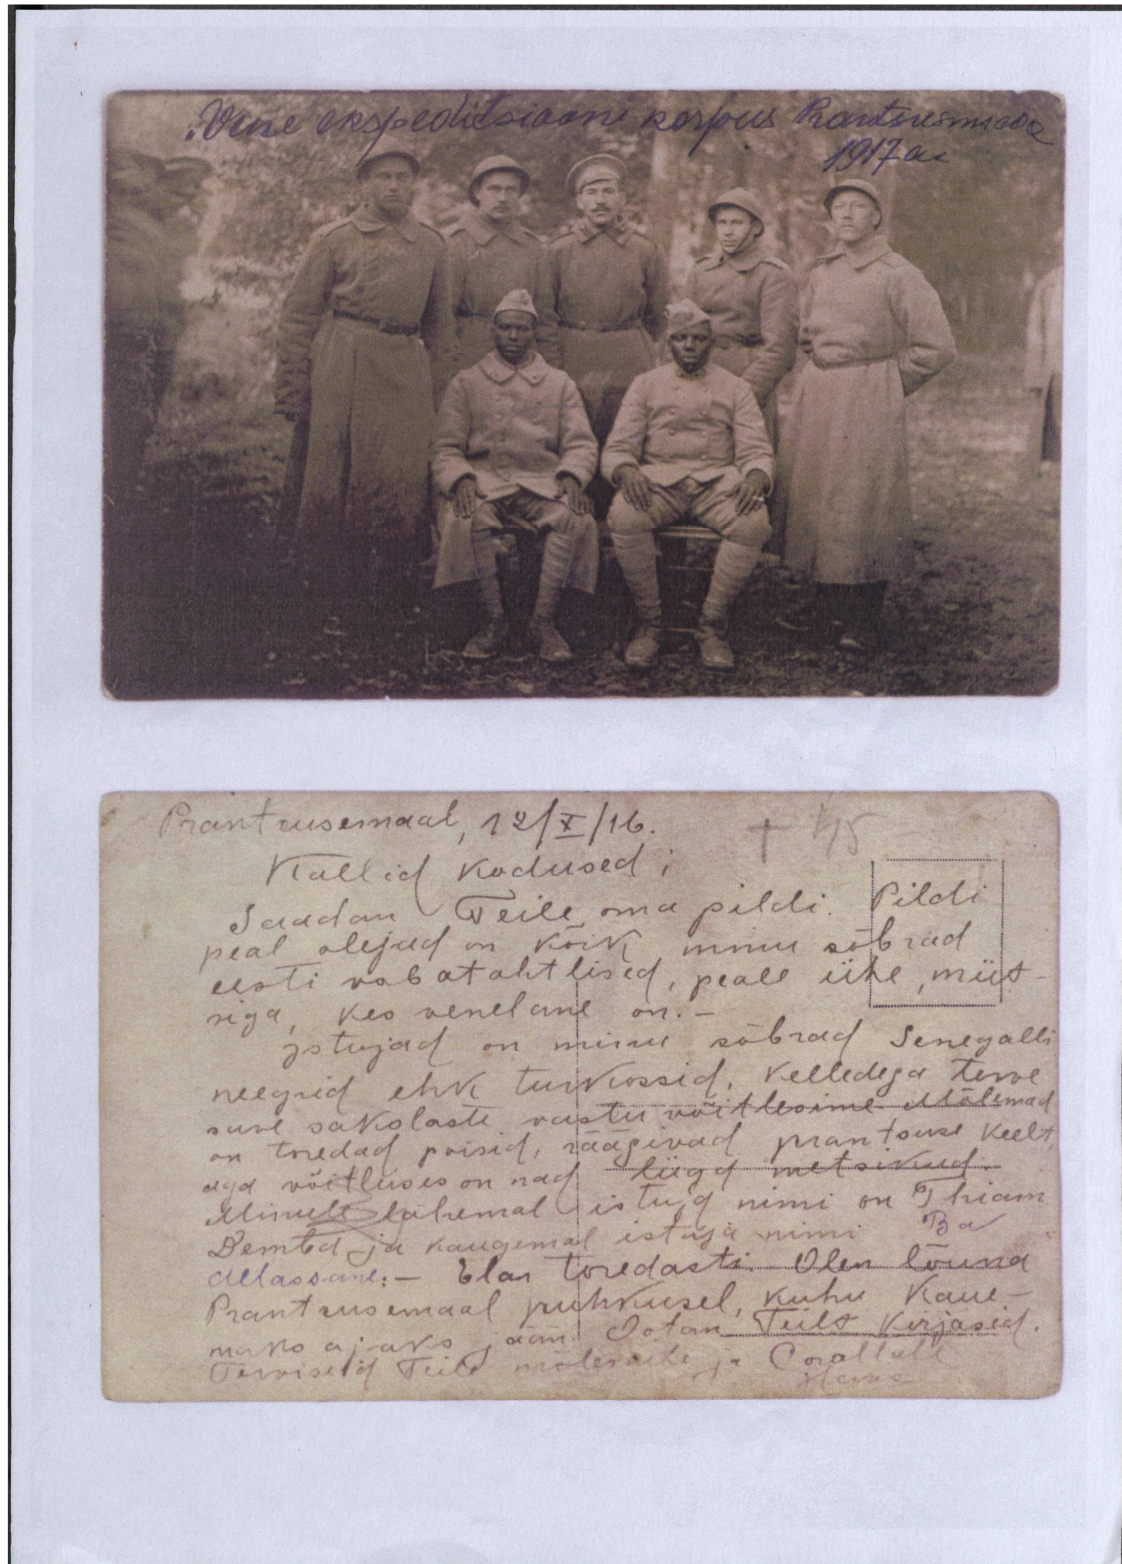 Vene ekspeditsiooni korpus Prantsusmaal
1917 a.
Prantsusemaal, 12/X/16.
+ 45
Kallid Kodused;
Saadan Teile oma pildi. Pildi
peal olejad on kõik minu sõbrad
eesti vabatahtlised, peale ühe, müt-
siga, kes venelane on. -
Istujad on minu sõbrad Senegalli
neegrid ehk turkossid, kelledega terve
suve sakslaste vastu võitlesime. Mõlemad
on toredad poisid, räägivad prantsuse keelt,
aga võitluses on nad liig metsikud.
Minule lähemal istuja nimi on Thiam
Demba ja kaugemal istuja nimi Ba
Allassane: - Elan toredasti. Olen lõuna
Prantsusemaal puhkusel, kuhu kaue-
maks ajaks jään. Ootan Teilt kirjasid.
Terviseid Teile mõlemile ja